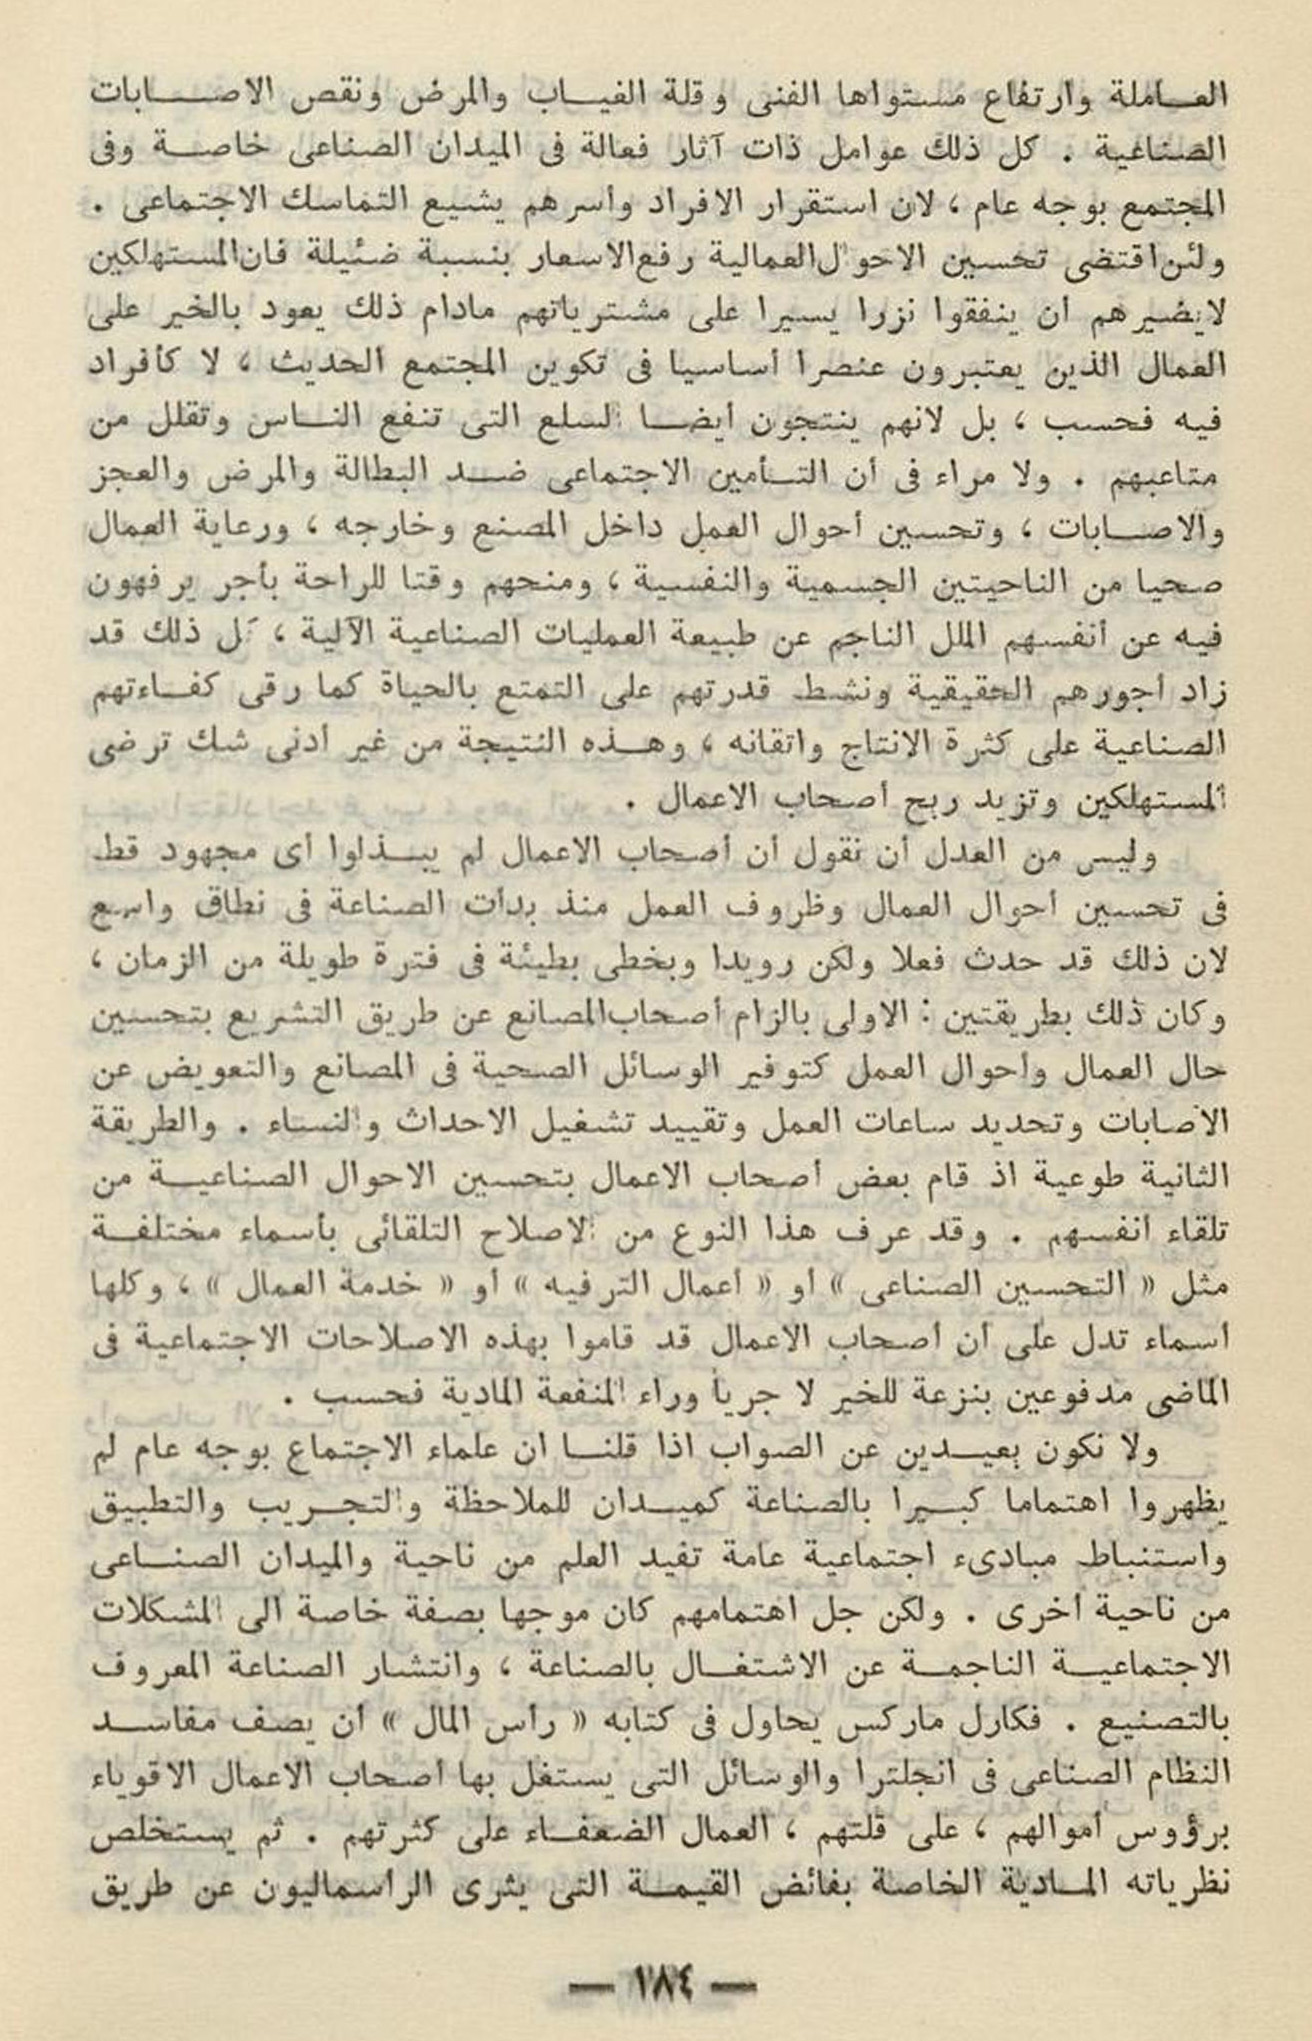 العاملة وارتفاع مستواها الفنى وقلة الغياب والمرض ونقص الاصابات
الصناعية . كل ذلك عوامل ذات آثار فعالة فى الميدان الصناعى خاصة وفى
المجتمع بوجه عام ، لان استقرار الافراد وأسرهم يشيع التماسك الاجتماعى .
ولئن اقتضى تحسين الاحوال العمالية رفع الاسعار بنسبة ضئيلة فان المستهلكين
لايضيرهم أن ينفقوا نزرا يسيرا على مشترياتهم مادام ذلك يعود بالخير على
العمال الذين يعتبرون عنصرا أساسيا فى تكوين المجتمع الحديث ، لا كأفراد
فيه فحسب ، بل لانهم ينتجون أيضا السلع التى تنفع الناس وتقلل من
متاعبهم . ولا مراء فى أن التأمين الاجتماعى ضد البطالة والمرض والعجز
والاصابات ، وتحسين أحوال العمل داخل المصنع وخارجه ، ورعاية العمال
صحيا من الناحيتين الجسمية والنفسية ، ومنحهم وقتا للراحة بأجر يرفهون
فيه عن أنفسهم الملل الناجم عن طبيعة العمليات الصناعية الآلية ، كل ذلك قد
زاد أجورهم الحقيقية ونشط قدرتهم على التمتع بالحياة كما رقى كفاءتهم
الصناعية على كثرة الانتاج واتقانه ، وهذه النتيجة من غير أدنى شك ترضى
المستهلكين وتزيد ربح أصحاب الاعمال .
وليس من العدل أن نقول أن أصحاب الاعمال لم يبذلوا أى مجهود قط
فى تحسين أحوال العمال وظروف العمل منذ بدأت الصناعة فى نطاق واسع
لان ذلك قد حدث فعلا ولكن رويدا وبخطى بطيئة فى فترة طويلة من الزمان ،
وكان ذلك بطريقتين : الاولى بالزام أصحاب المصانع عن طريق التشريع بتحسين
حال العمال وأحوال العمل كتوفير الوسائل الصحية فى المصانع والتعويض عن
الاصابات وتحديد ساعات العمل وتقييد تشغيل الاحداث والنساء . والطريقة
الثانية طوعية اذ قام بعض أصحاب الاعمال بتحسين الاحوال الصناعية من
تلقاء أنفسهم . وقد عرف هذا النوع من الاصلاح التلقائى بأسماء مختلفة
مثل « التحسين الصناعى » أو « أعمال الترفيه » أو « خدمة العمال » ، وكلها
أسماء تدل على أن أصحاب الاعمال قد قاموا بهذه الاصلاحات الاجتماعية فى
الماضى مدفوعين بنزعة للخير لا جريا وراء المنفعة المادية فحسب .
ولا نكون بعيدين عن الصواب اذا قلنا ان علماء الاجتماع بوجه عام لم
يظهروا اهتماما كبيرا بالصناعة كميدان للملاحظة والتجريب والتطبيق
واستنباط مبادىء اجتماعية عامة تفيد العلم من ناحية والميدان الصناعى
من ناحية أخرى . ولكن جل اهتمامهم كان موجها بصفة خاصة الى المشكلات
الاجتماعية الناجمة عن الاشتغال بالصناعة ، وانتشار الصناعة المعروف
بالتصنيع . فكارل ماركس يحاول فى كتابه « رأس المال » أن يصف مفاسد
النظام الصناعى فى انجلترا والوسائل التى يستغل بها أصحاب الاعمال الاقوياء
برؤوس أموالهم ، على قلتهم ، العمال الضعفاء على كثرتهم . ثم يستخلص
نظرياته المادية الخاصة بفائض القيمة التى يثرى الرأسماليون عن طريق
— ١٨٤ —